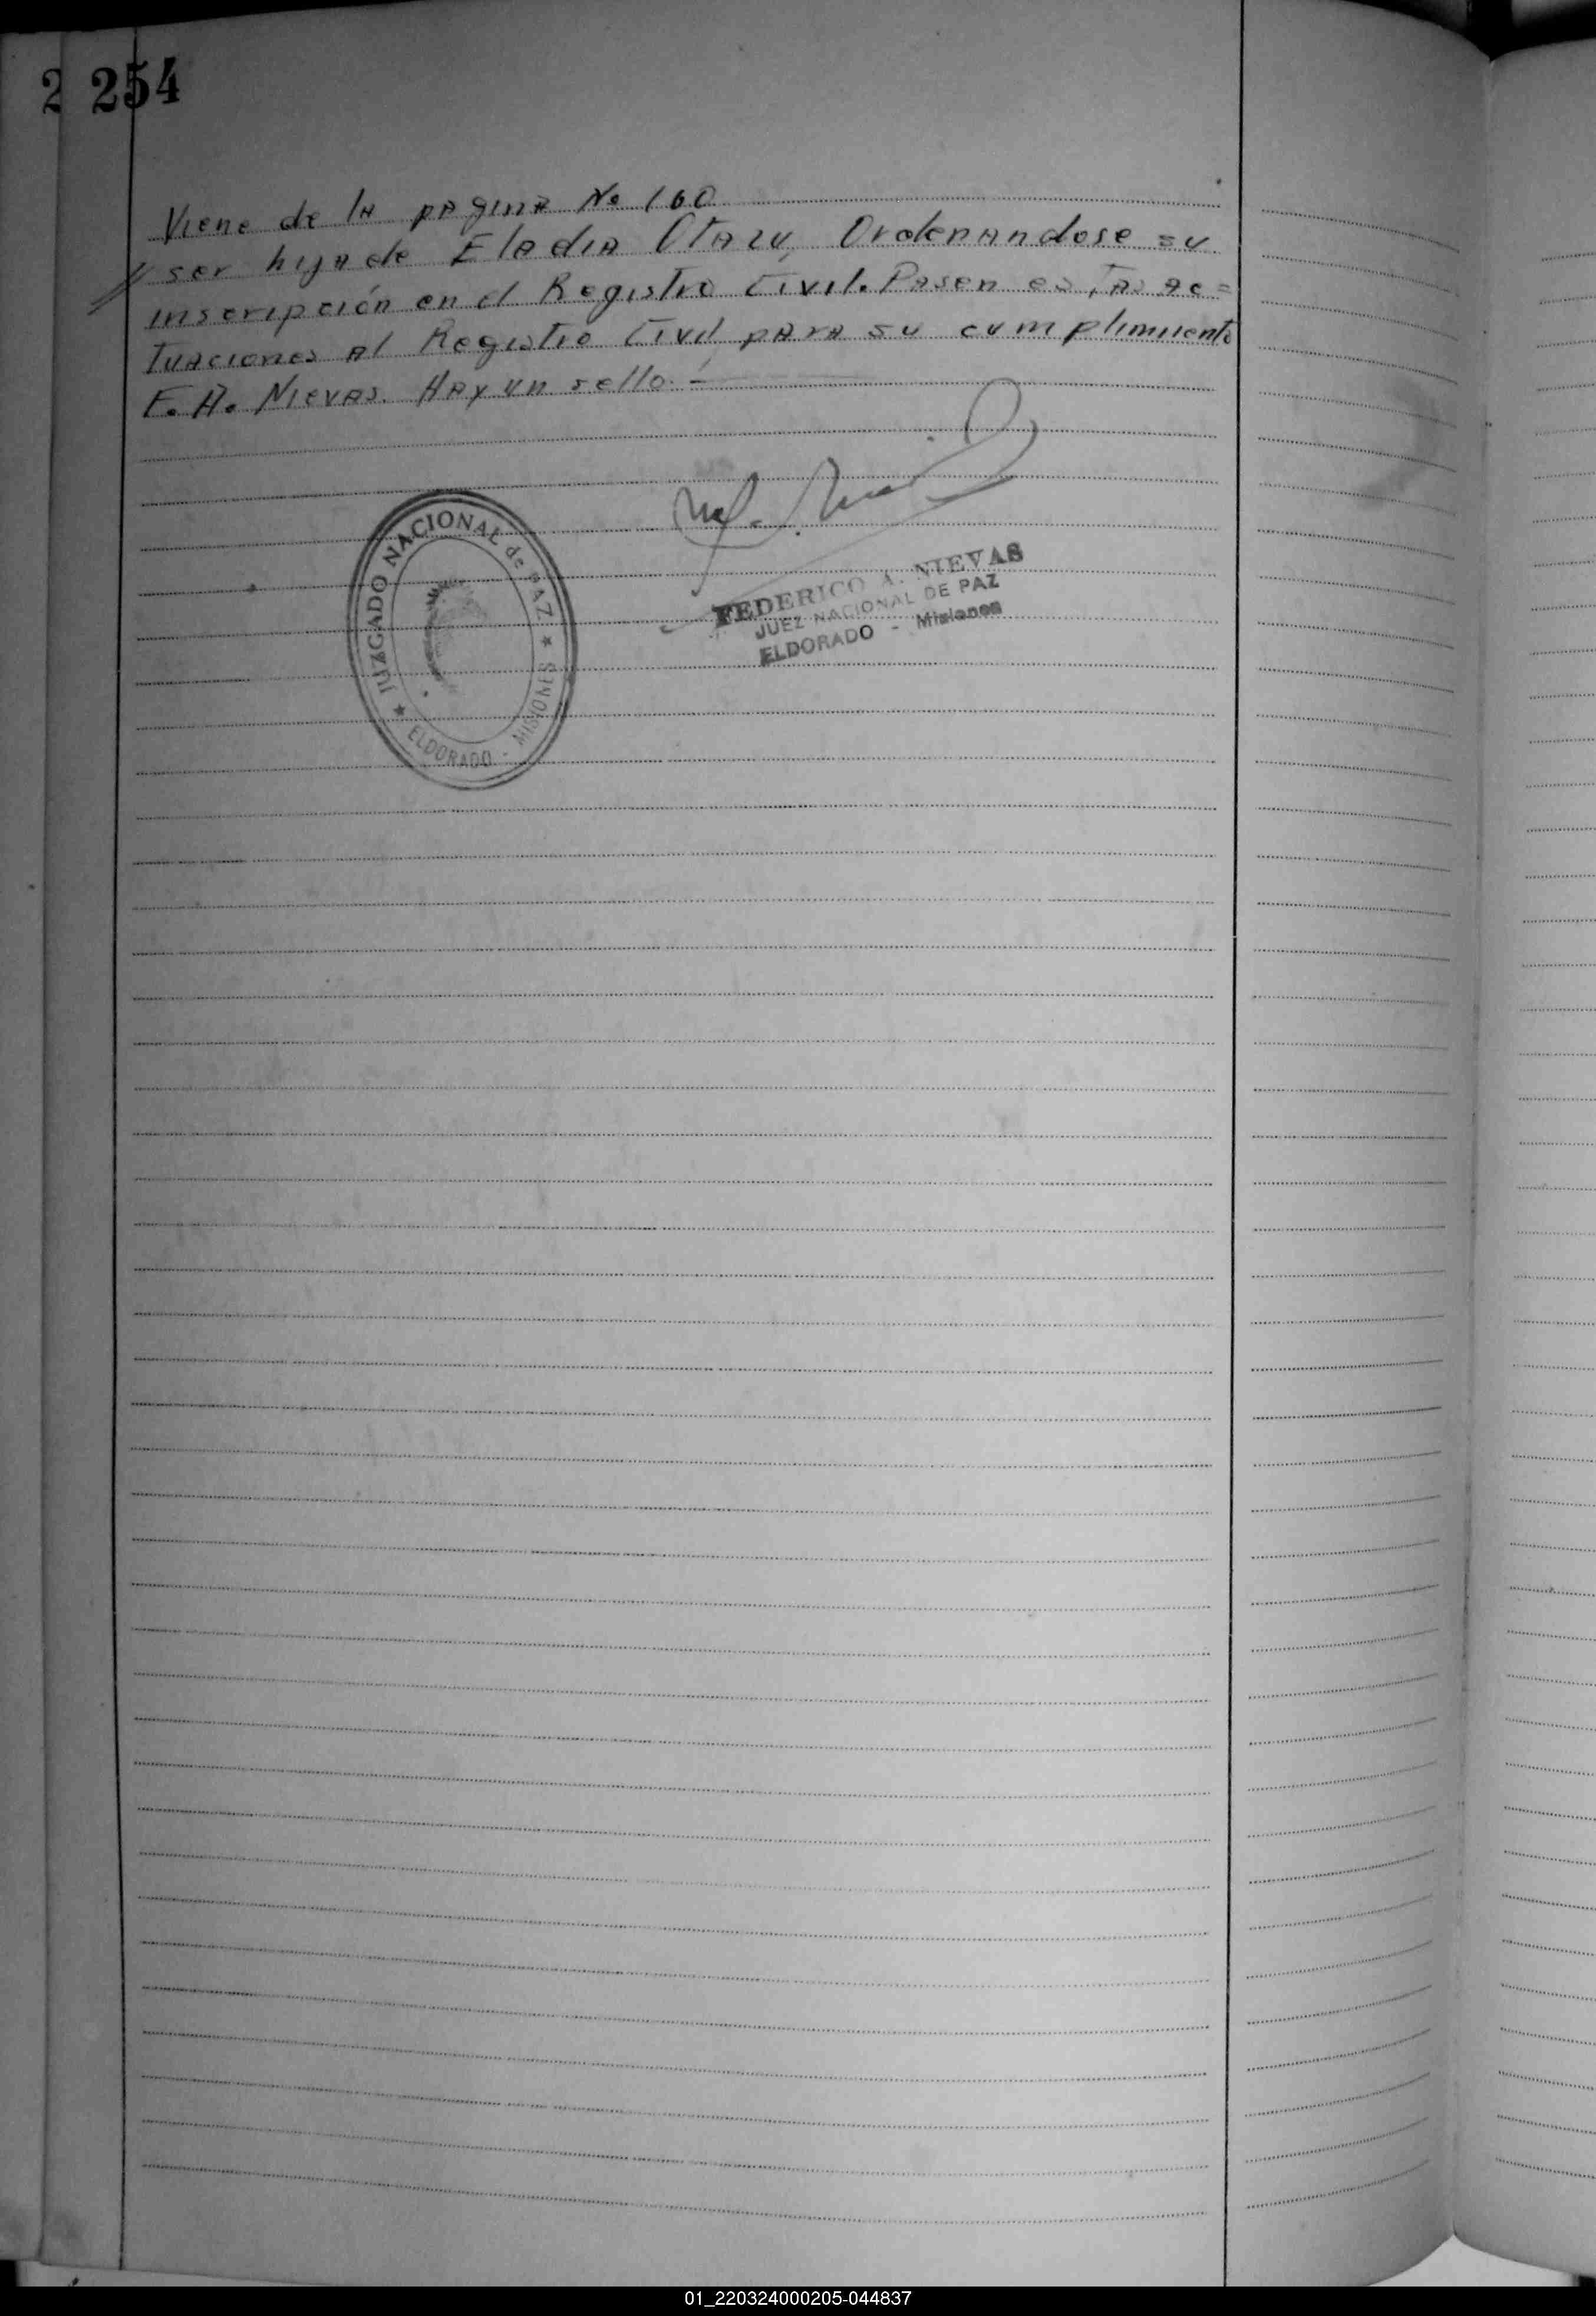 2 254
Viene de la pagina No 160
// ser hija de Eladia Otazu, Ordenandose su
inscripción en el Registro Civil. Pasen estas ac=
tuaciones al Registro Civil para su cumplimiento
F. A. Nievas. Hay un sello. -
JUZGADO NACIONAL de PAZ
★ ELDORADO - MISIONES ★
FEDERICO A. NIEVAS
JUEZ NACIONAL DE PAZ
ELDORADO - Misiones
01_220324000205-044837